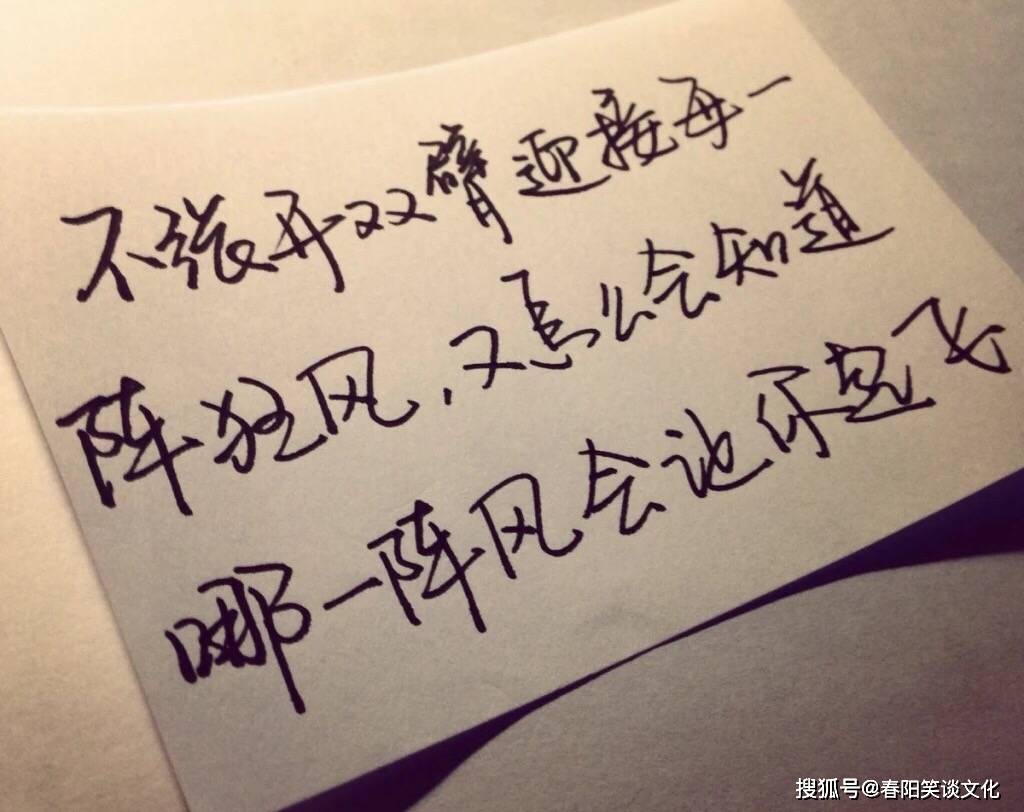 不张开双臂迎接每一
阵狂风,又怎么会知道
哪一阵风会让你起飞
搜狐号@春阳笑谈文化